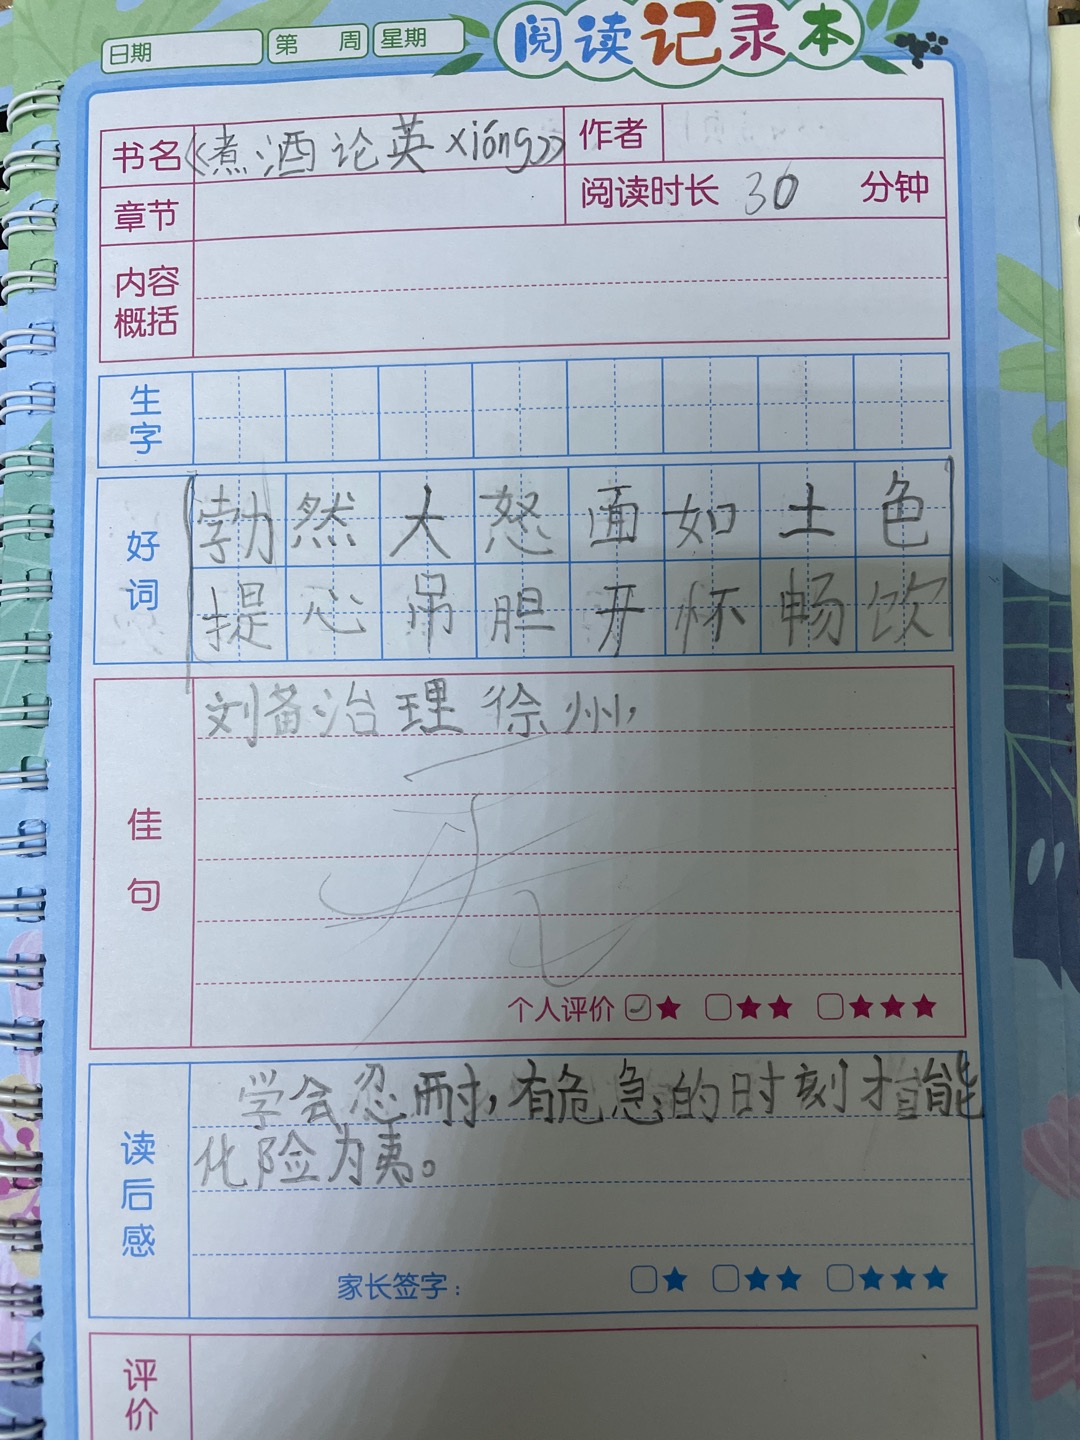 日期 第 周 星期 阅读记录本
书名 《煮酒论英xióng》 作者
章节 阅读时长 30 分钟
内容
概括
生
字
好
词
勃然大怒面如土色
提心吊胆开怀畅饮
佳
句
刘备治理徐州，
无
个人评价 ★ ★★ ★★★
读
后
感
学会忍耐，有危急的时刻才能
化险为夷。
家长签字： ★ ★★ ★★★
评
价